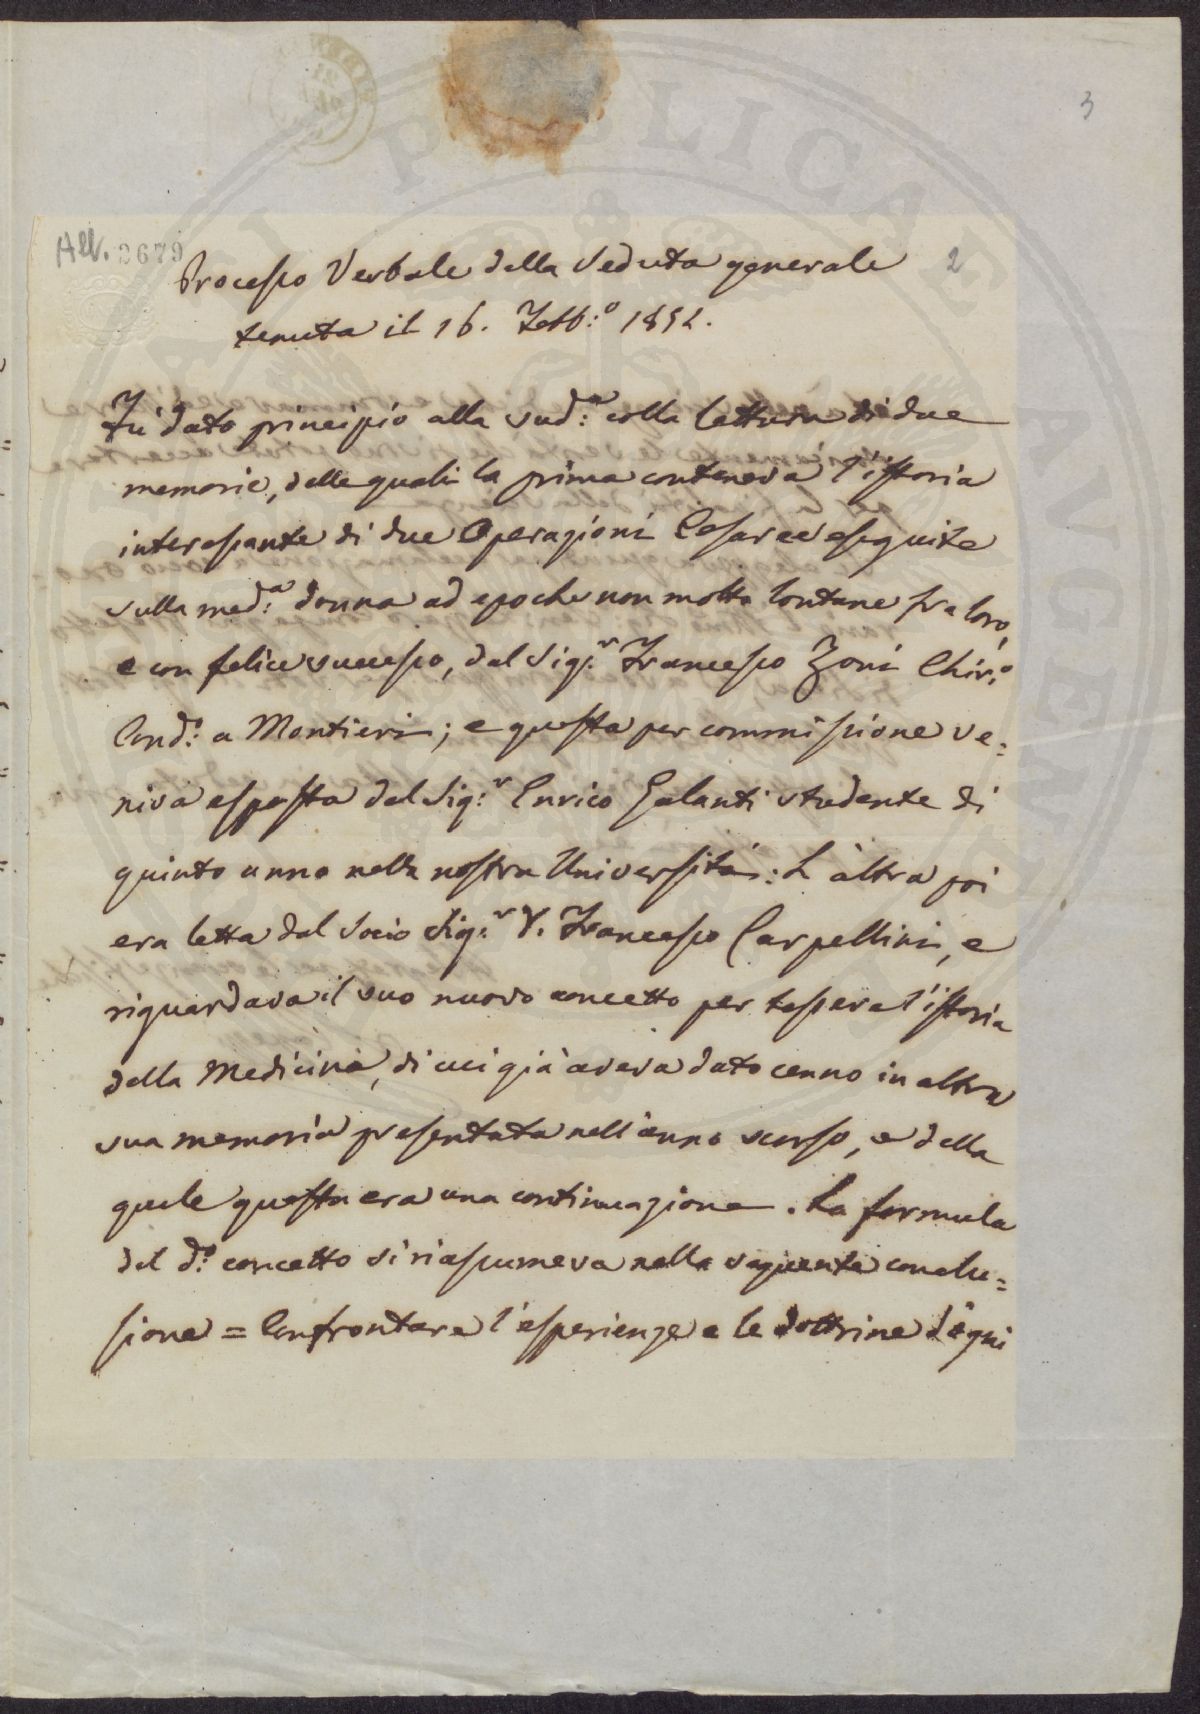 3
All. 2679
2
Processo Verbale della Seduta generale
tenuta il 16. Febb:º 1852.
Fù dato principio alla sud:ª colla lettura di due
memorie, delle quali la prima conteneva l'istoria
interessante di due Operazioni Cesaree eseguite
sulla med:ª donna ad epoche non molto lontane fra loro,
e con felice successo, dal Sig:r Francesco Zoni Chir:º
Cond:º a Montieri; e questa per commissione ve=
niva esposta dal Sig:r Enrico Galanti studente di
quinto anno nella nostra Università: L'altra poi
era letta dal Socio Sig:r D. Francesco Carpellini, e
riguardava il suo nuovo concetto per tessere l'istoria
della Medicina, di cui già aveva dato cenno in altra
sua memoria presentata nell'anno scorso, e della
quale questa era una continuazione. La formula
del d:º concetto si riassumeva nella seguente conclu=
sione = Confrontare l'esperienze e le dottrine d'ogni